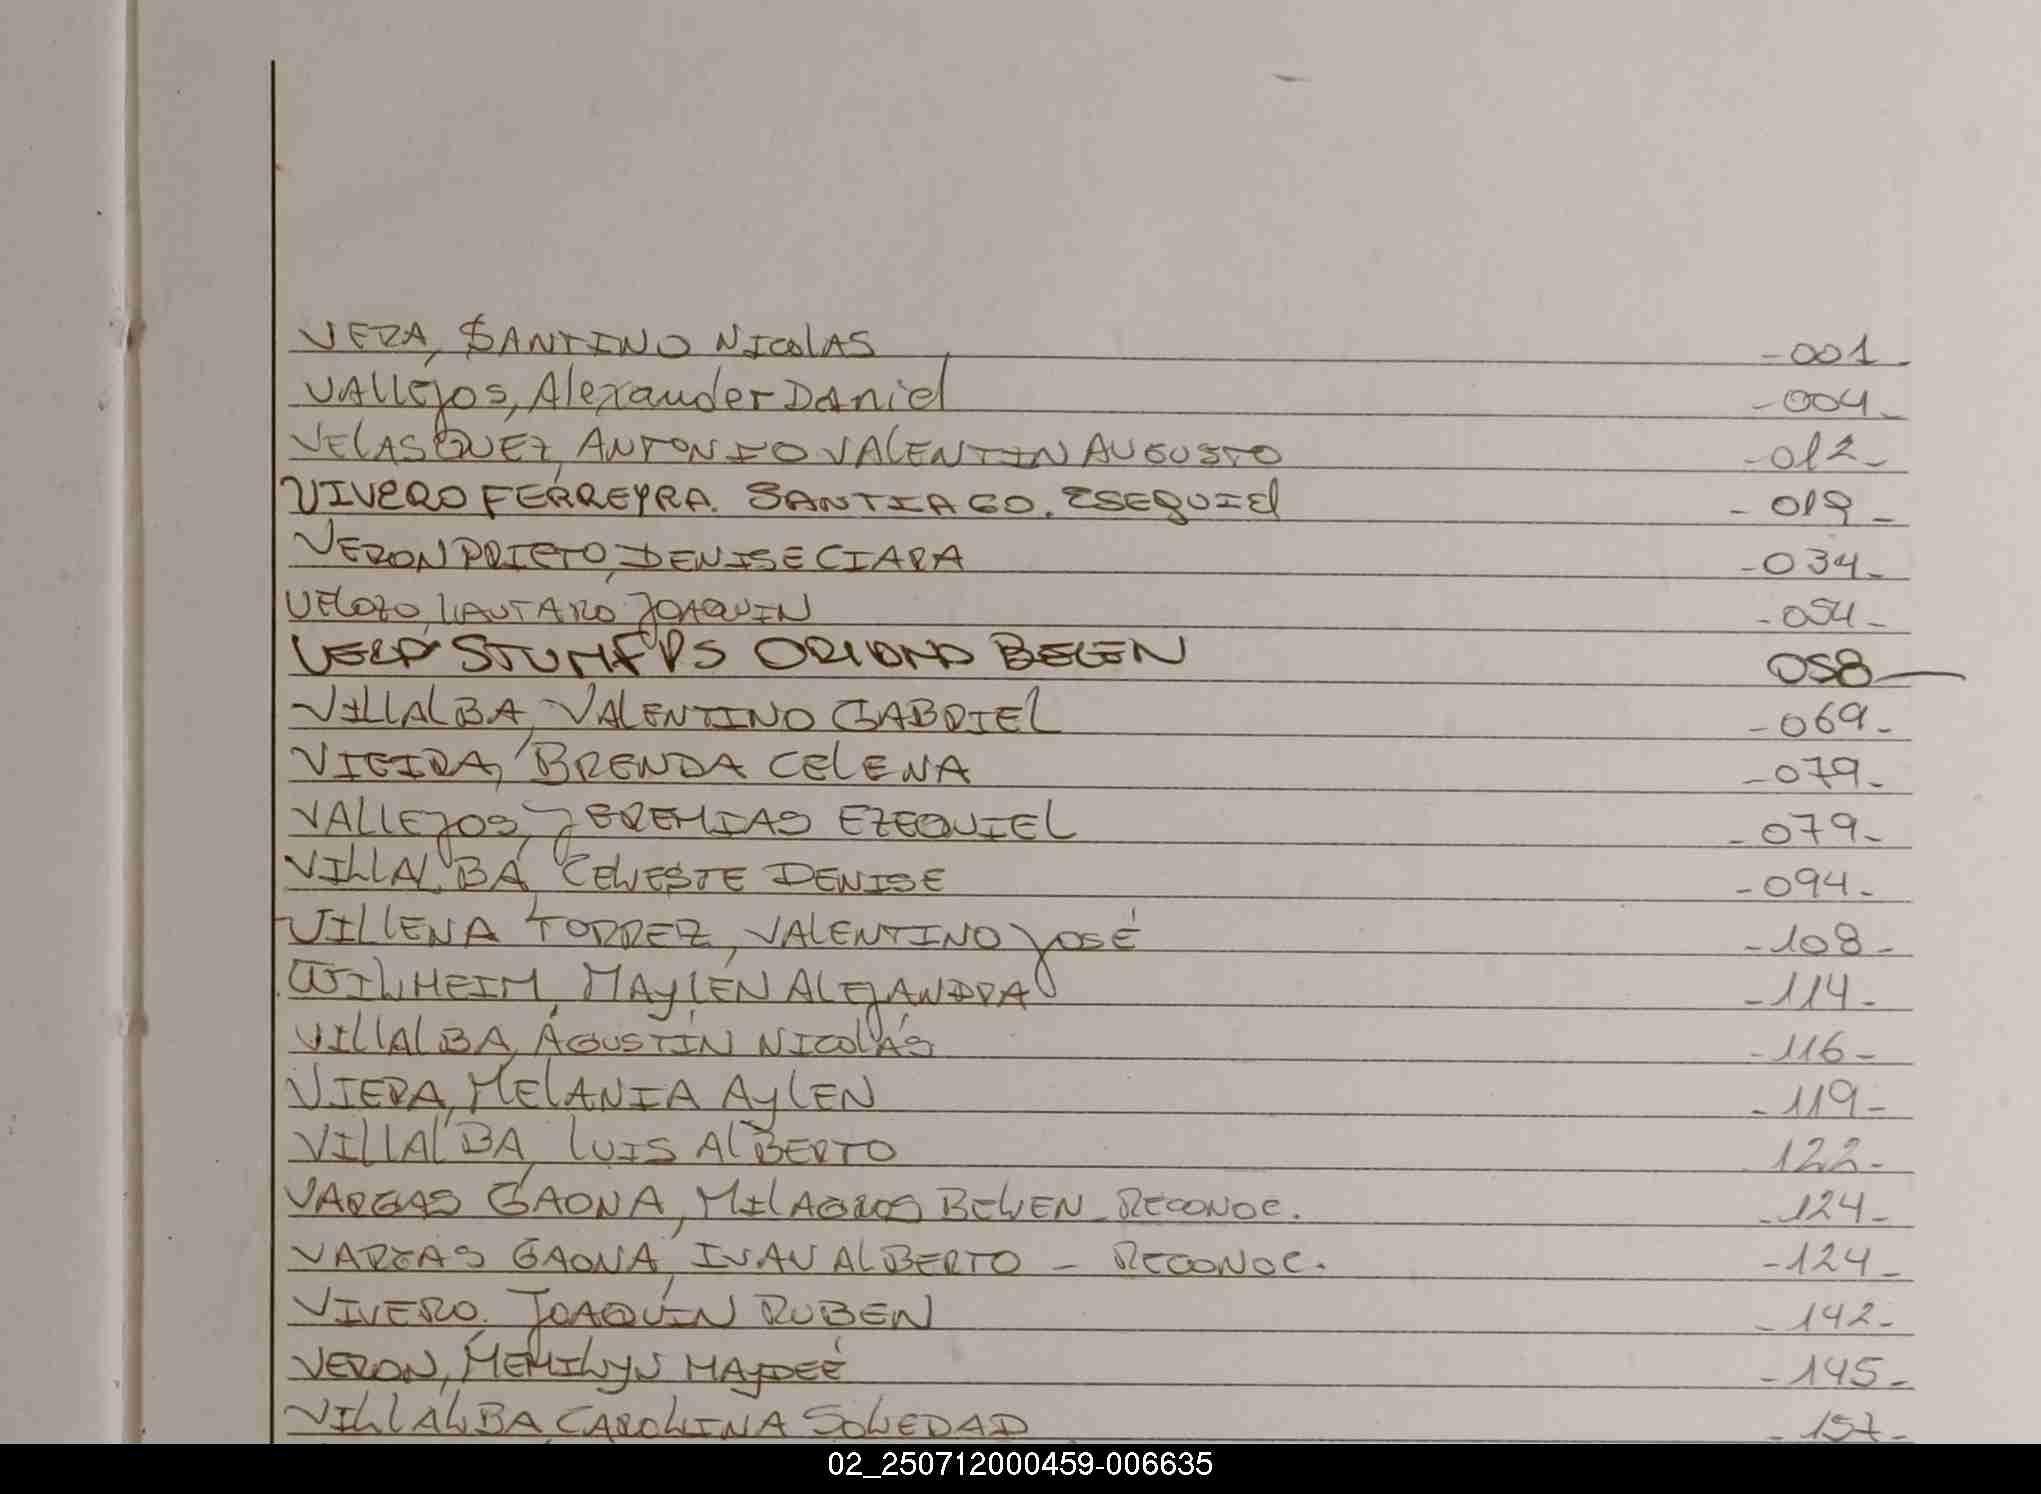 VERA, SANTINO NICOLAS -001-
VALLEJOS, Alexander Daniel -004-
VELASQUEZ, ANTONIO VALENTIN AUGUSTO -012-
VIVERO FERREYRA. SANTIAGO. ESEQUIEL - 019 -
VERON PRIETO, DENISE CIARA -034-
VELOZO, LAUTARO JOAQUIN -054-
VERA STUMFPS ORIANA BELEN 058-
VILLALBA, VALENTINO GABRIEL -069-
VIEIRA, BRENDA CELENA -079-
VALLEJOS, JEREMIAS EZEQUIEL -079-
VILLALBA, CELESTE DENISE -094-
VILLENA TORREZ, VALENTINO JOSÉ -108-
WILHEIM, MAYLEN ALEJANDRA -114-
VILLALBA, AGUSTÍN NICOLÁS -116-
VIERA, MELANIA AYLEN -119-
VILLALBA, LUIS ALBERTO 122-
VARGAS GAONA, MILAGROS BELEN - RECONOC. -124-
VARGAS GAONA, IVAN ALBERTO - RECONOC. -124-
VIVERO, JOAQUÍN RUBEN -142-
VERON, HAYDEÉ -145-
VILLALBA, CAROLINA SOLEDAD -157-
02_250712000459-006635